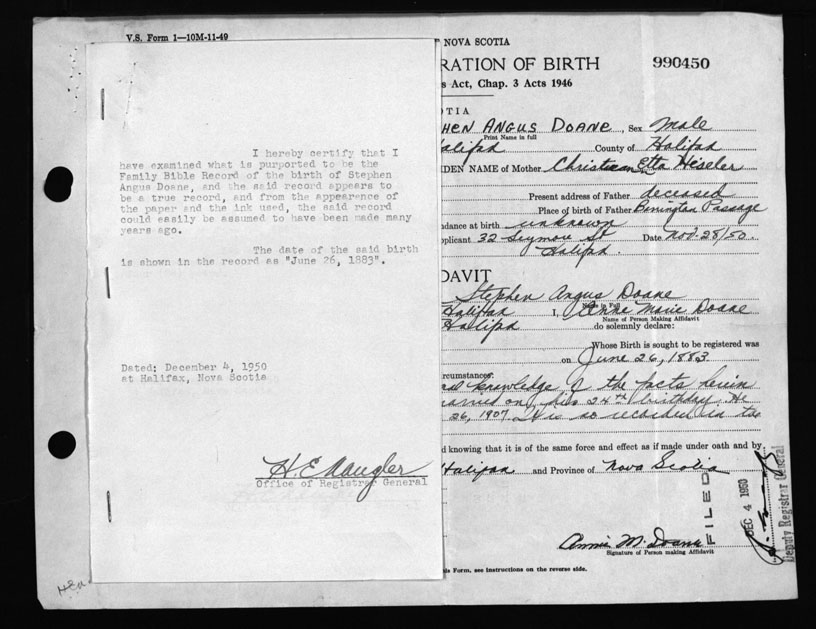 V.S. Form 1—10M-11-49
I hereby certify that I
have examined what is purported to be the
Family Bible Record of the birth of Stephen
Angus Doane, and the said record appears to
be a true record, and from the appearance of
the paper and the ink used, the said record
could easily be assumed to have been made many
years ago.
The date of the said birth
is shown in the record as "June 26, 1883".
Dated: December 4, 1950
at Halifax, Nova Scotia
Office of Registrar General
NOVA SCOTIA
RATION OF BIRTH 990450
s Act, Chap. 3 Acts 1946
OTIA
HEN ANGUS DOANE, Sex Male
Print Name in full
alifax County of Halifax
DEN NAME of Mother Etta Heisler
Present address of Father deceased
Place of birth of Father Barrington Passage
dance at birth unknown
plicant 32 Seymour St Date Nov. 28/50.
Halifax.
DAVIT
Stephen Angus Doane
Name in Full
Halifax I, Annie Marie Doane
Name of Person Making Affidavit
Halifax do solemnly declare:
Whose Birth is sought to be registered was
on June 26, 1883
ircumstances:
knowledge of the facts herein
married on his 24th birthday. He
26, 1907. It is so recorded in the
d knowing that it is of the same force and effect as if made under oath and by
Halifax and Province of Nova Scotia
FILED
DEC 4 1950
Deputy Registrar General
Annie M. Doane
Signature of Person making Affidavit
is Form, see instructions on the reverse side.